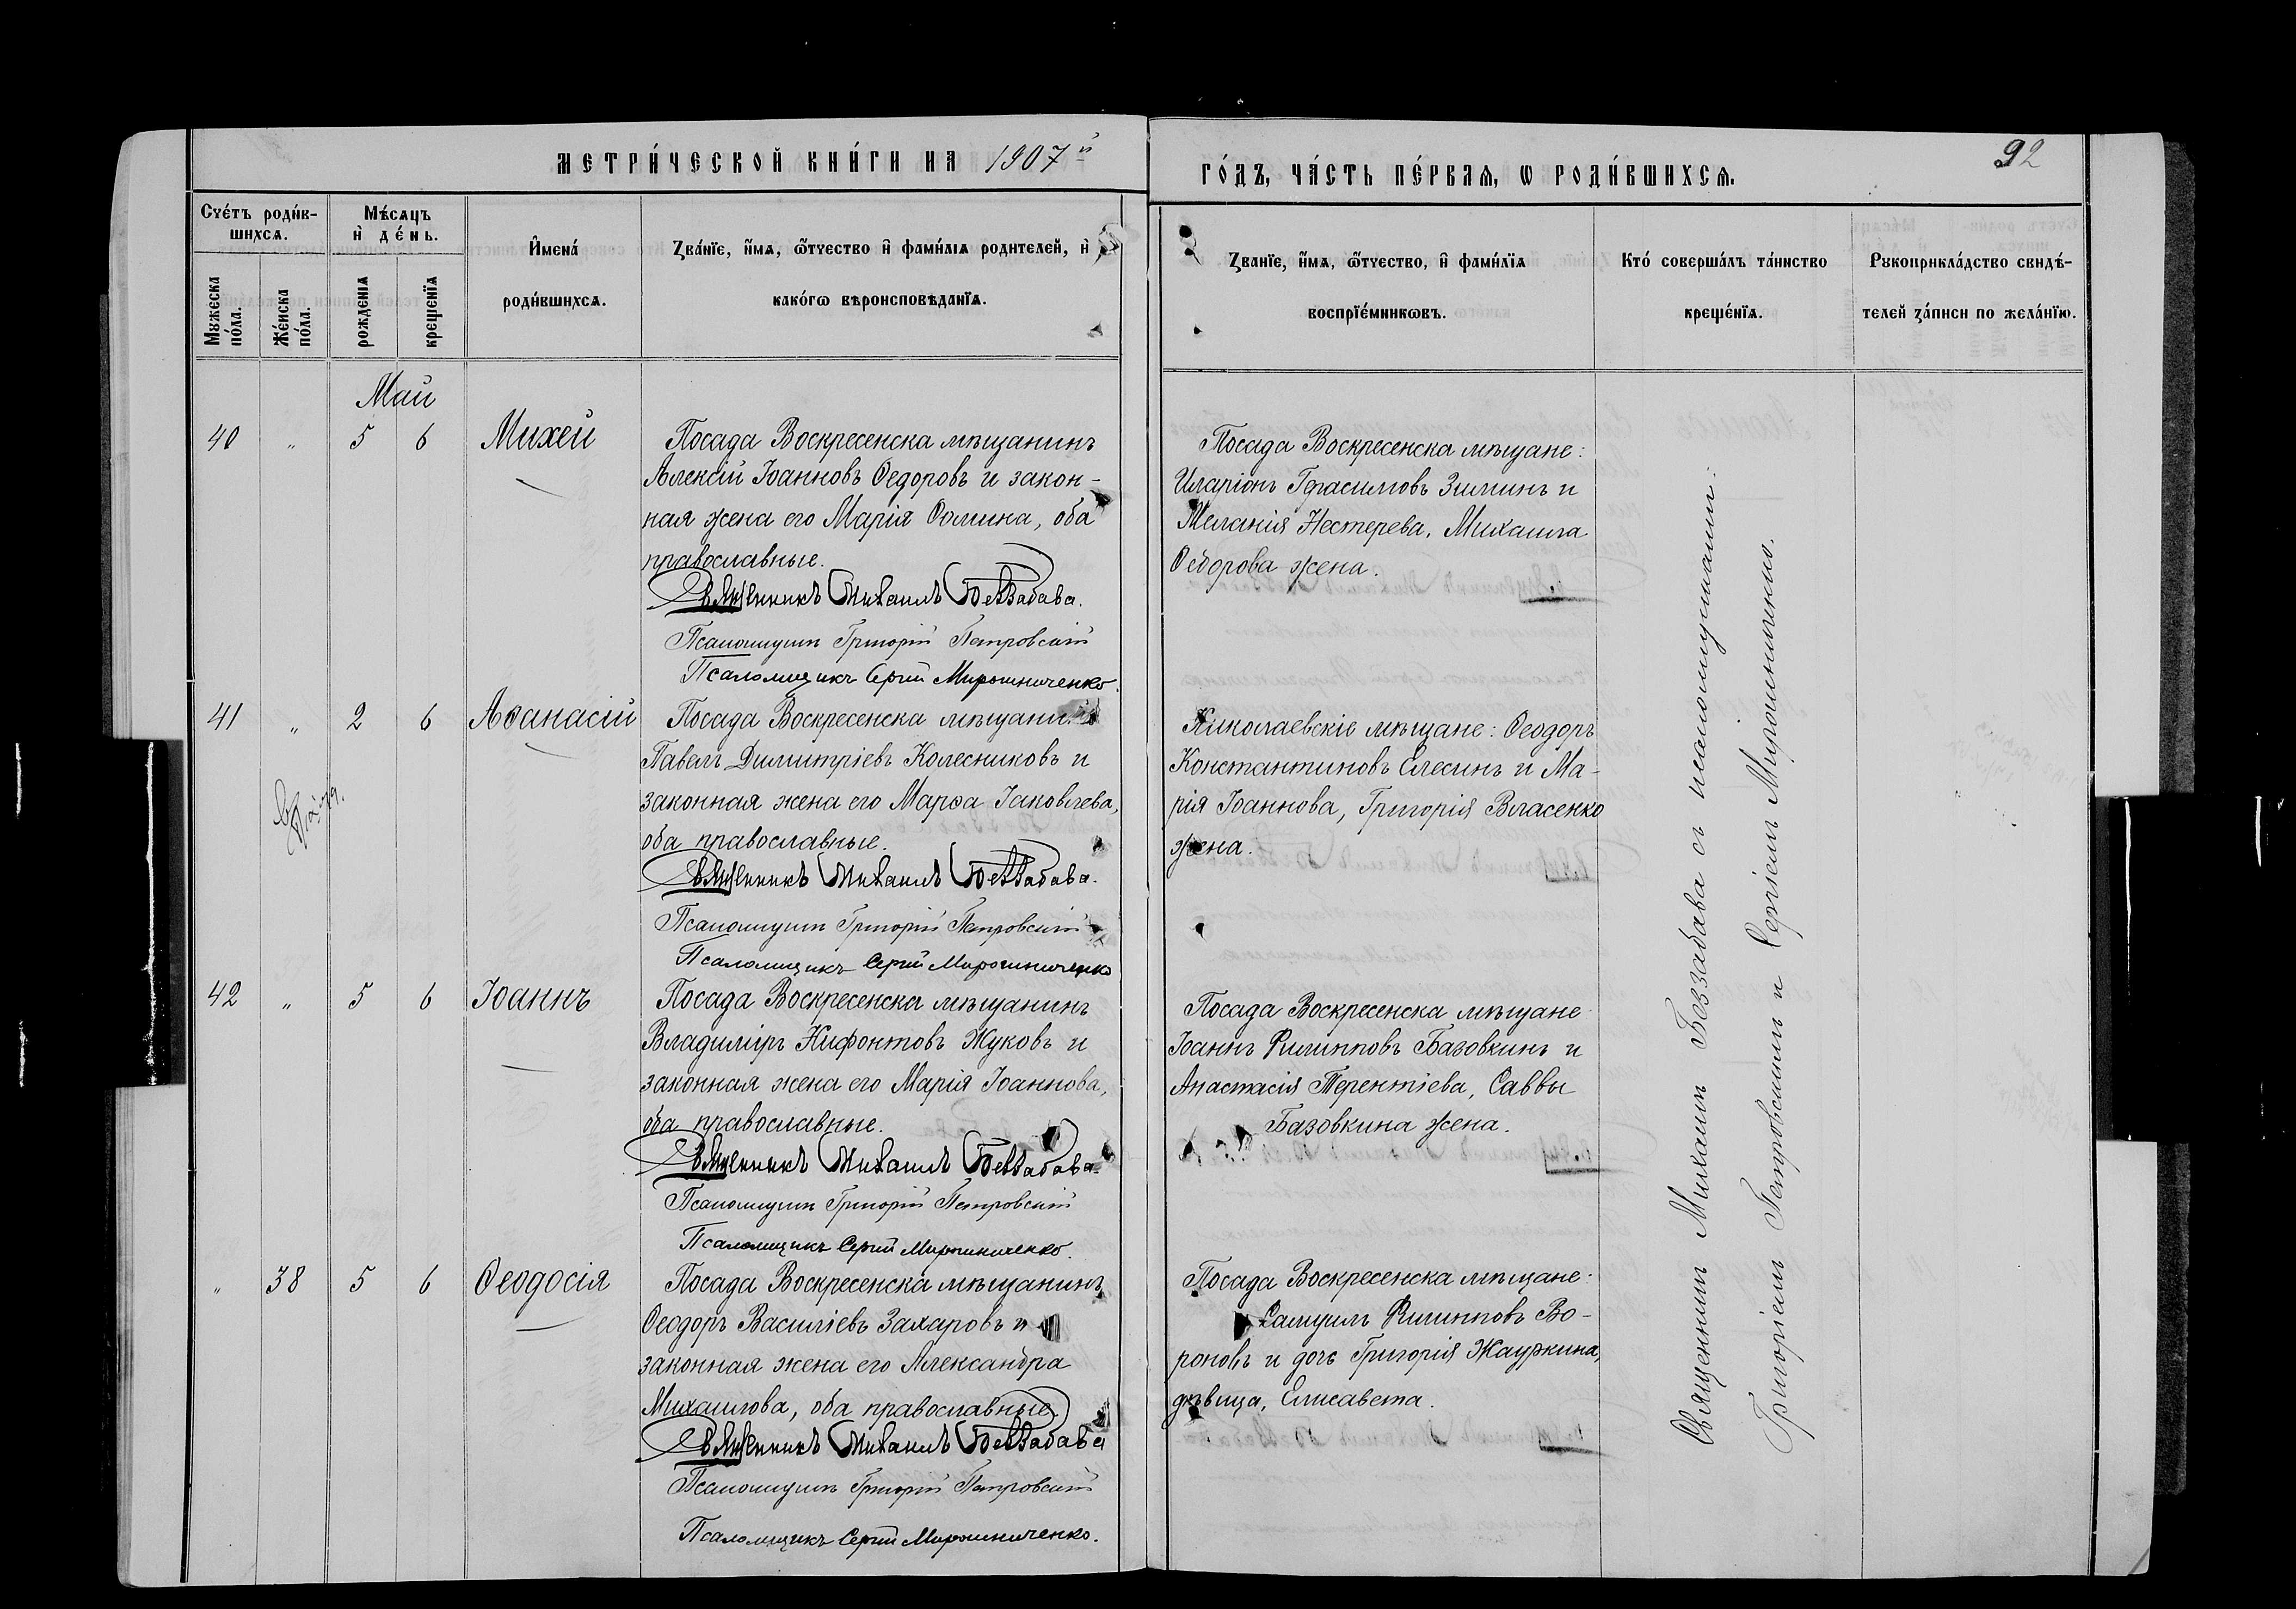 МЕТРИ́ЧЕСКОЙ КНИ́ГИ НА 1907й
ГО́ДЪ, ЧА́СТЬ ПЕ́РВАѦ, Ѡ РОДИ́ВШИХСѦ.
92
Счéтъ роди́в-
шихсѧ.
Мужеска
по́ла.
Же́нска
по́ла.
Мѣ́сѧцъ
и҆ де́нь.
рожденїѧ
крещенїѧ
И҆мена́
роди́вшихсѧ.
Зва́нїе, и҆́мѧ, ѻ҆́тчество и҆ фами́лїѧ родителей, и҆
како́гѡ вѣроисповѣданїѧ.
Званїе, и҆́мѧ, ѻ҆́тчество, и҆ фами́лїѧ
воспрїе́мникѡвъ.
Кто́ соверша́лъ та́инство
креще́нїѧ.
Рукоприкла́дство свидѣ́-
телей за́писи по жела́нїю.
Май
40 " 5 6 Михей
Посада Воскресенска мѣщанинъ
Алексій Іоанновъ Ѳедоровъ и закон-
ная жена его Марія Ѳомина, оба
православные.
Священникъ Михаилъ Беззабава.
Псаломщикъ Григорій Петровскій
Псаломщикъ Сергій Мирошниченко.
Посада Воскресенска мѣщане:
Иларіонъ Герасимовъ Зиминъ и
Меланія Нестерева, Михаила
Ѳедорова жена.
41 " 2 6 Аѳанасій
Посада Воскресенска мѣщанинъ
Павелъ Димитріевъ Колесниковъ и
законная жена его Марѳа Іаковлева,
оба православные.
Священникъ Михаилъ Беззабава.
Псаломщикъ Григорій Петровскій
Псаломщикъ Сергій Мирошниченко
Николаевскіе мѣщане: Ѳеодоръ
Константиновъ Елесинъ и Ма-
рія Іоаннова, Григорія Власенко
жена.
42 " 5 6 Іоаннъ
Посада Воскресенска мѣщанинъ
Владиміръ Нифонтовъ Жуковъ и
законная жена его Марія Іоаннова,
оба православные.
Священникъ Михаилъ Беззабава.
Псаломщикъ Григорій Петровскій
Псаломщикъ Сергій Мирошниченко.
Посада Воскресенска мѣщане
Іоаннъ Филипповъ Базовкинъ и
Анастасія Терентіева, Саввы
Базовкина жена.
" 38 5 6 Ѳеодосія
Посада Воскресенска мѣщанинъ
Ѳеодоръ Василіевъ Захаровъ и
законная жена его Александра
Михаилова, оба православные.
Священникъ Михаилъ Беззабава
Псаломщикъ Григорій Петровскій
Псаломщикъ Сергій Мирошниченко.
Посада Воскресенска мѣщане:
Самуилъ Филипповъ Во-
роновъ и дочь Григорія Жауркина,
дѣвица, Елисавета.
Священникъ Михаилъ Беззабава съ псаломщиками:
Григоріемъ Петровскимъ и Сергіемъ Мирошниченко.